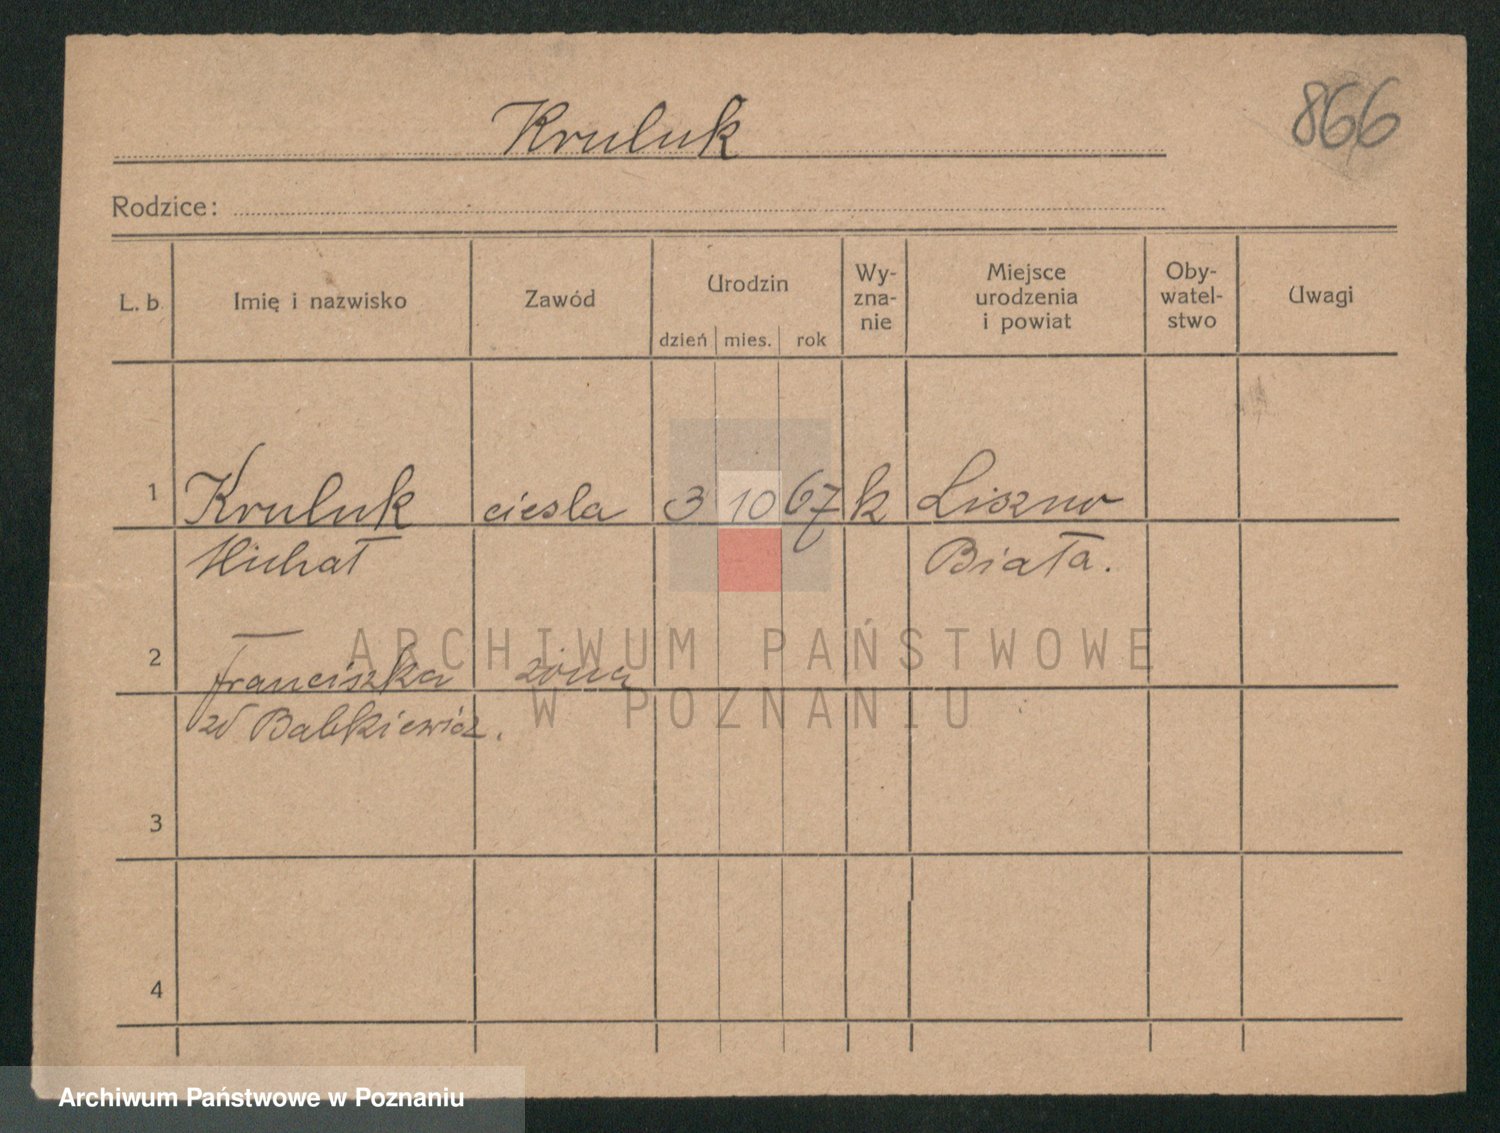 Kruluk
866
Rodzice:
L. b. Imię i nazwisko Zawód Urodzin dzień mies. rok Wy-zna-nie Miejsce urodzenia i powiat Oby-watel-stwo Uwagi
1 Kruluk ciesla 3 10 67 k Liszno
Michał Biała.
2 Franciszka żona
zd Babkiewicz.
3
4
ARCHIWUM PAŃSTWOWE
W POZNANIU
Archiwum Państwowe w Poznaniu